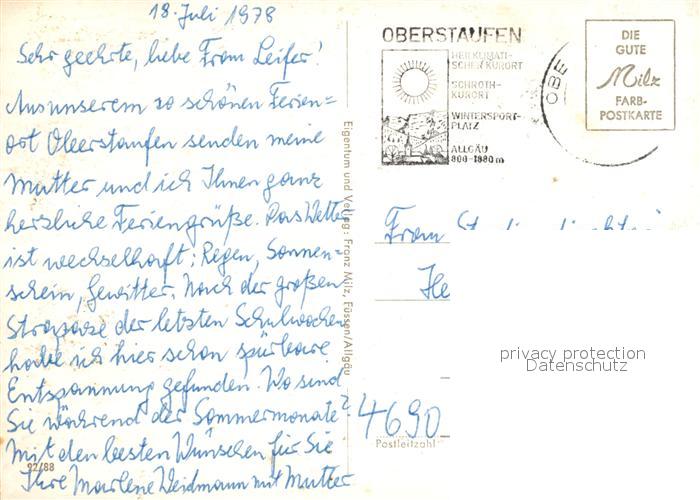 18. Juli 1978
Sehr geehrte, liebe Frau Leifer!
Aus unserem so schönen Ferien=
ort Oberstaufen senden meine
Mutter und ich Ihnen ganz
herzliche Feriengrüße. Das Wetter
ist wechselhaft: Regen, Sonnen=
schein, Gewitter. Nach der großen
Strapaze der letzten Schulwochen
habe ich hier schon spürbare
Entspannung gefunden. Wo sind
Sie während der Sommermonate?
Mit den besten Wünschen für Sie
Ihre Marlene Weidmann mit Mutter
92/88
Eigentum und Verlag: Franz Milz, Füssen/Allgäu
OBERSTAUFEN
HEILKLIMATI-
SCHER KURORT
SCHROTH-
KURORT
WINTERSPORT-
PLATZ
ALLGÄU
800-1800 m
OBE
DIE
GUTE
Milz
FARB-
POSTKARTE
Frau
He
privacy protection
Datenschutz
4690
Postleitzahl